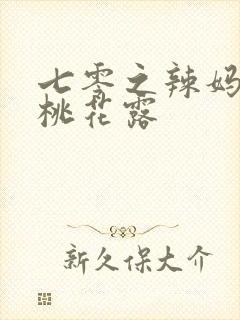 七零之辣妈
桃花露
新久保大介